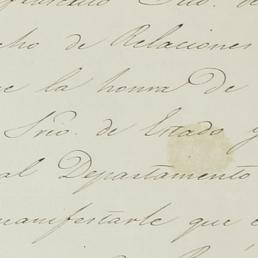 cho de Relaciones
e la honra de
Srio. de Estado y
al Departamento
manifestarle que